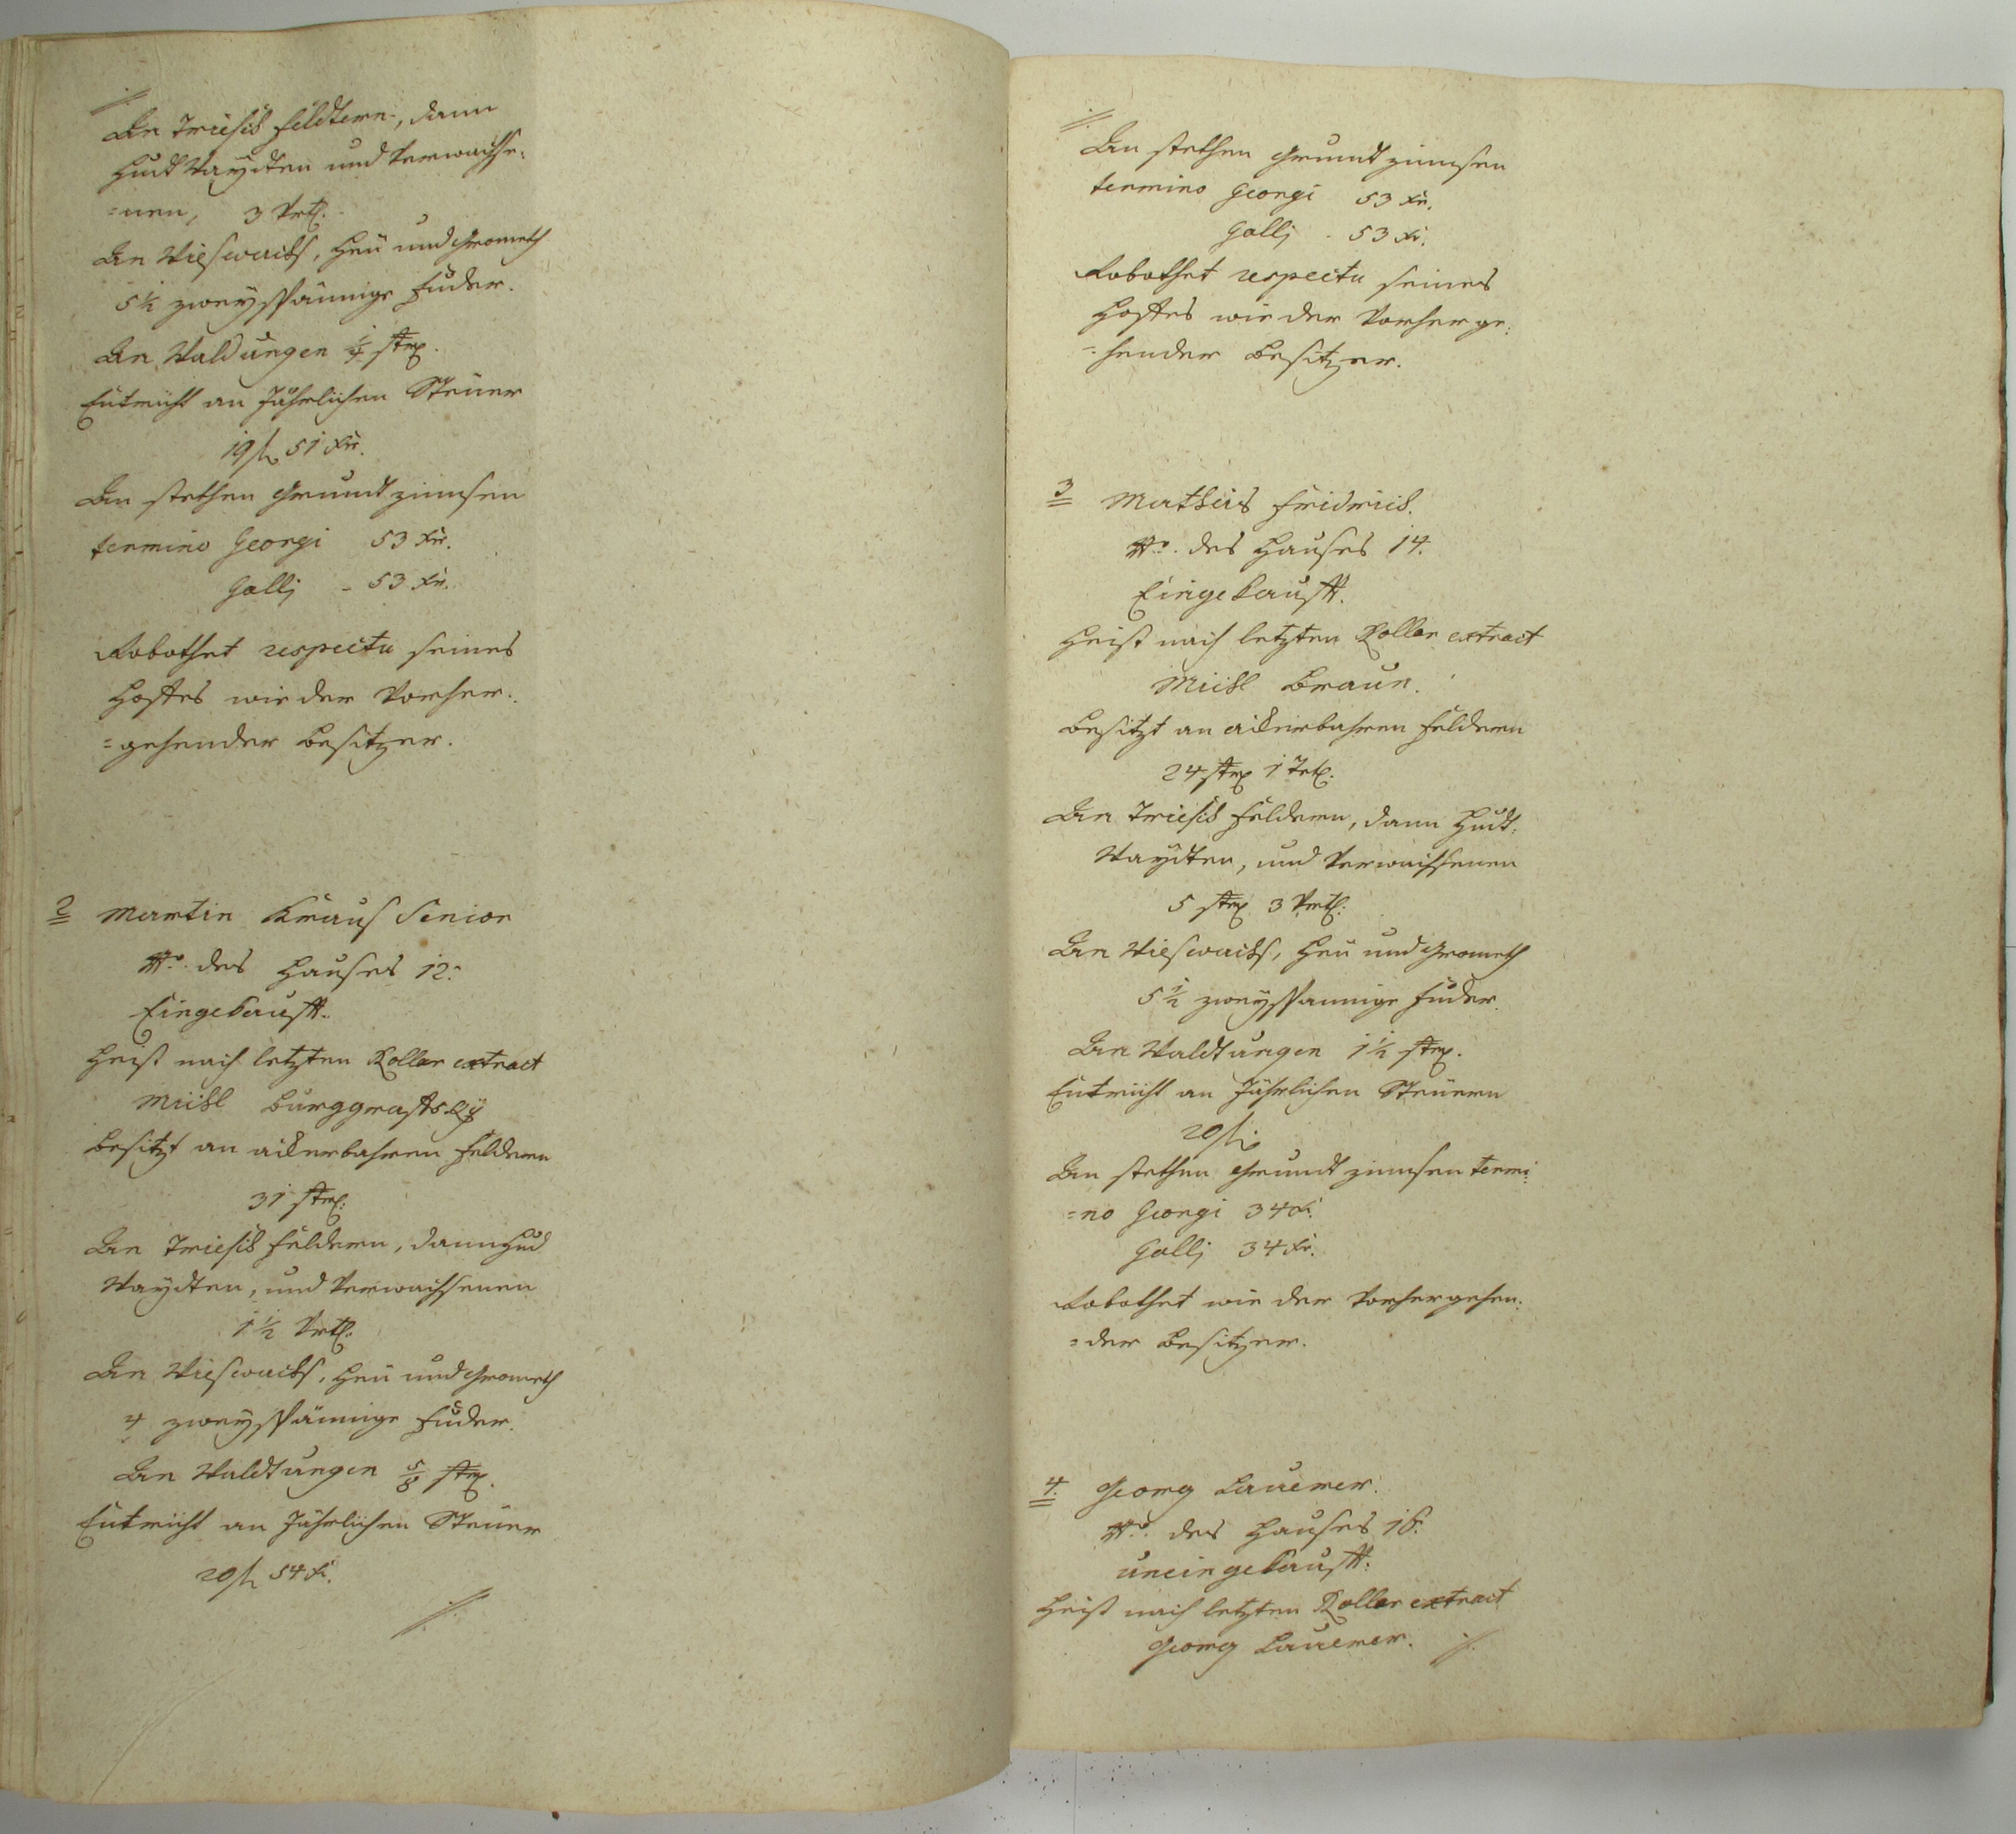 An Triesch feldtern, dann
Hudt Waydten und Verwachse-
=nen, 3 Vrtl.
An Wieswachs, Heu und Grometh
5½ zweyspännige fuder.
An Waldungen ¼ str.
Entricht an Jährlichen Steuer
19 f 51 kr.
An stethen Grundt zinnsen
termino Georgi 53 kr.
Galli - 53 kr.
Robothet respectu seines
Hoffes wie der Vorher-
=gehender besitzer.
2 Martin Kraus Senior
Nro. des Hauses 12.
Eingekaufft.
Heist nach letzten Rollar extract
Michl Burggrafsky
besitzt an ackerbahren feldern
31 str:
An Triesch feldern, dann Hud
Waydten, und Verwachsenen
1½ Vrtl:
An Wieswachs, Heu und Grometh
4 zweyspännige fuder.
An Waldtungen ⅝ str.
Entricht an Jährlichen Steuer
20 f 54 kr.
·/.
An stethen Grundt zinnsen
termino Georgi 53 kr.
Galli - 53 kr.
Robothet respectu seines
Hoffes wie der Vorherge-
=hender besitzer.
3 Mathias Fridrich.
Nro. des Hauses 14.
Eingekaufft.
Heist nach letzten Rollar extract
Michl Braun.
besitzt an ackerbahren feldern
24 str 1 Vrtl.
An Triesch feldern, dann Hudt-
Waydten, und Verwachsenen
5 str 3 Vrtl:
An Wieswachs, Heu und Grometh
5½ zweyspannige fuder.
An Waldtungen 1½ str.
Entricht an Jährlichen Steuern
20 f.
An stethen Grundt zinnsen termi-
=no Georgi 34 kr.
Galli 34 kr.
Robothet wie der Vorhergehen-
=der besitzer.
4. Georg
Nro. des Hauses 16.
uneingekaufft.
Heist nach letzten Rollar extract
Georg ·/.